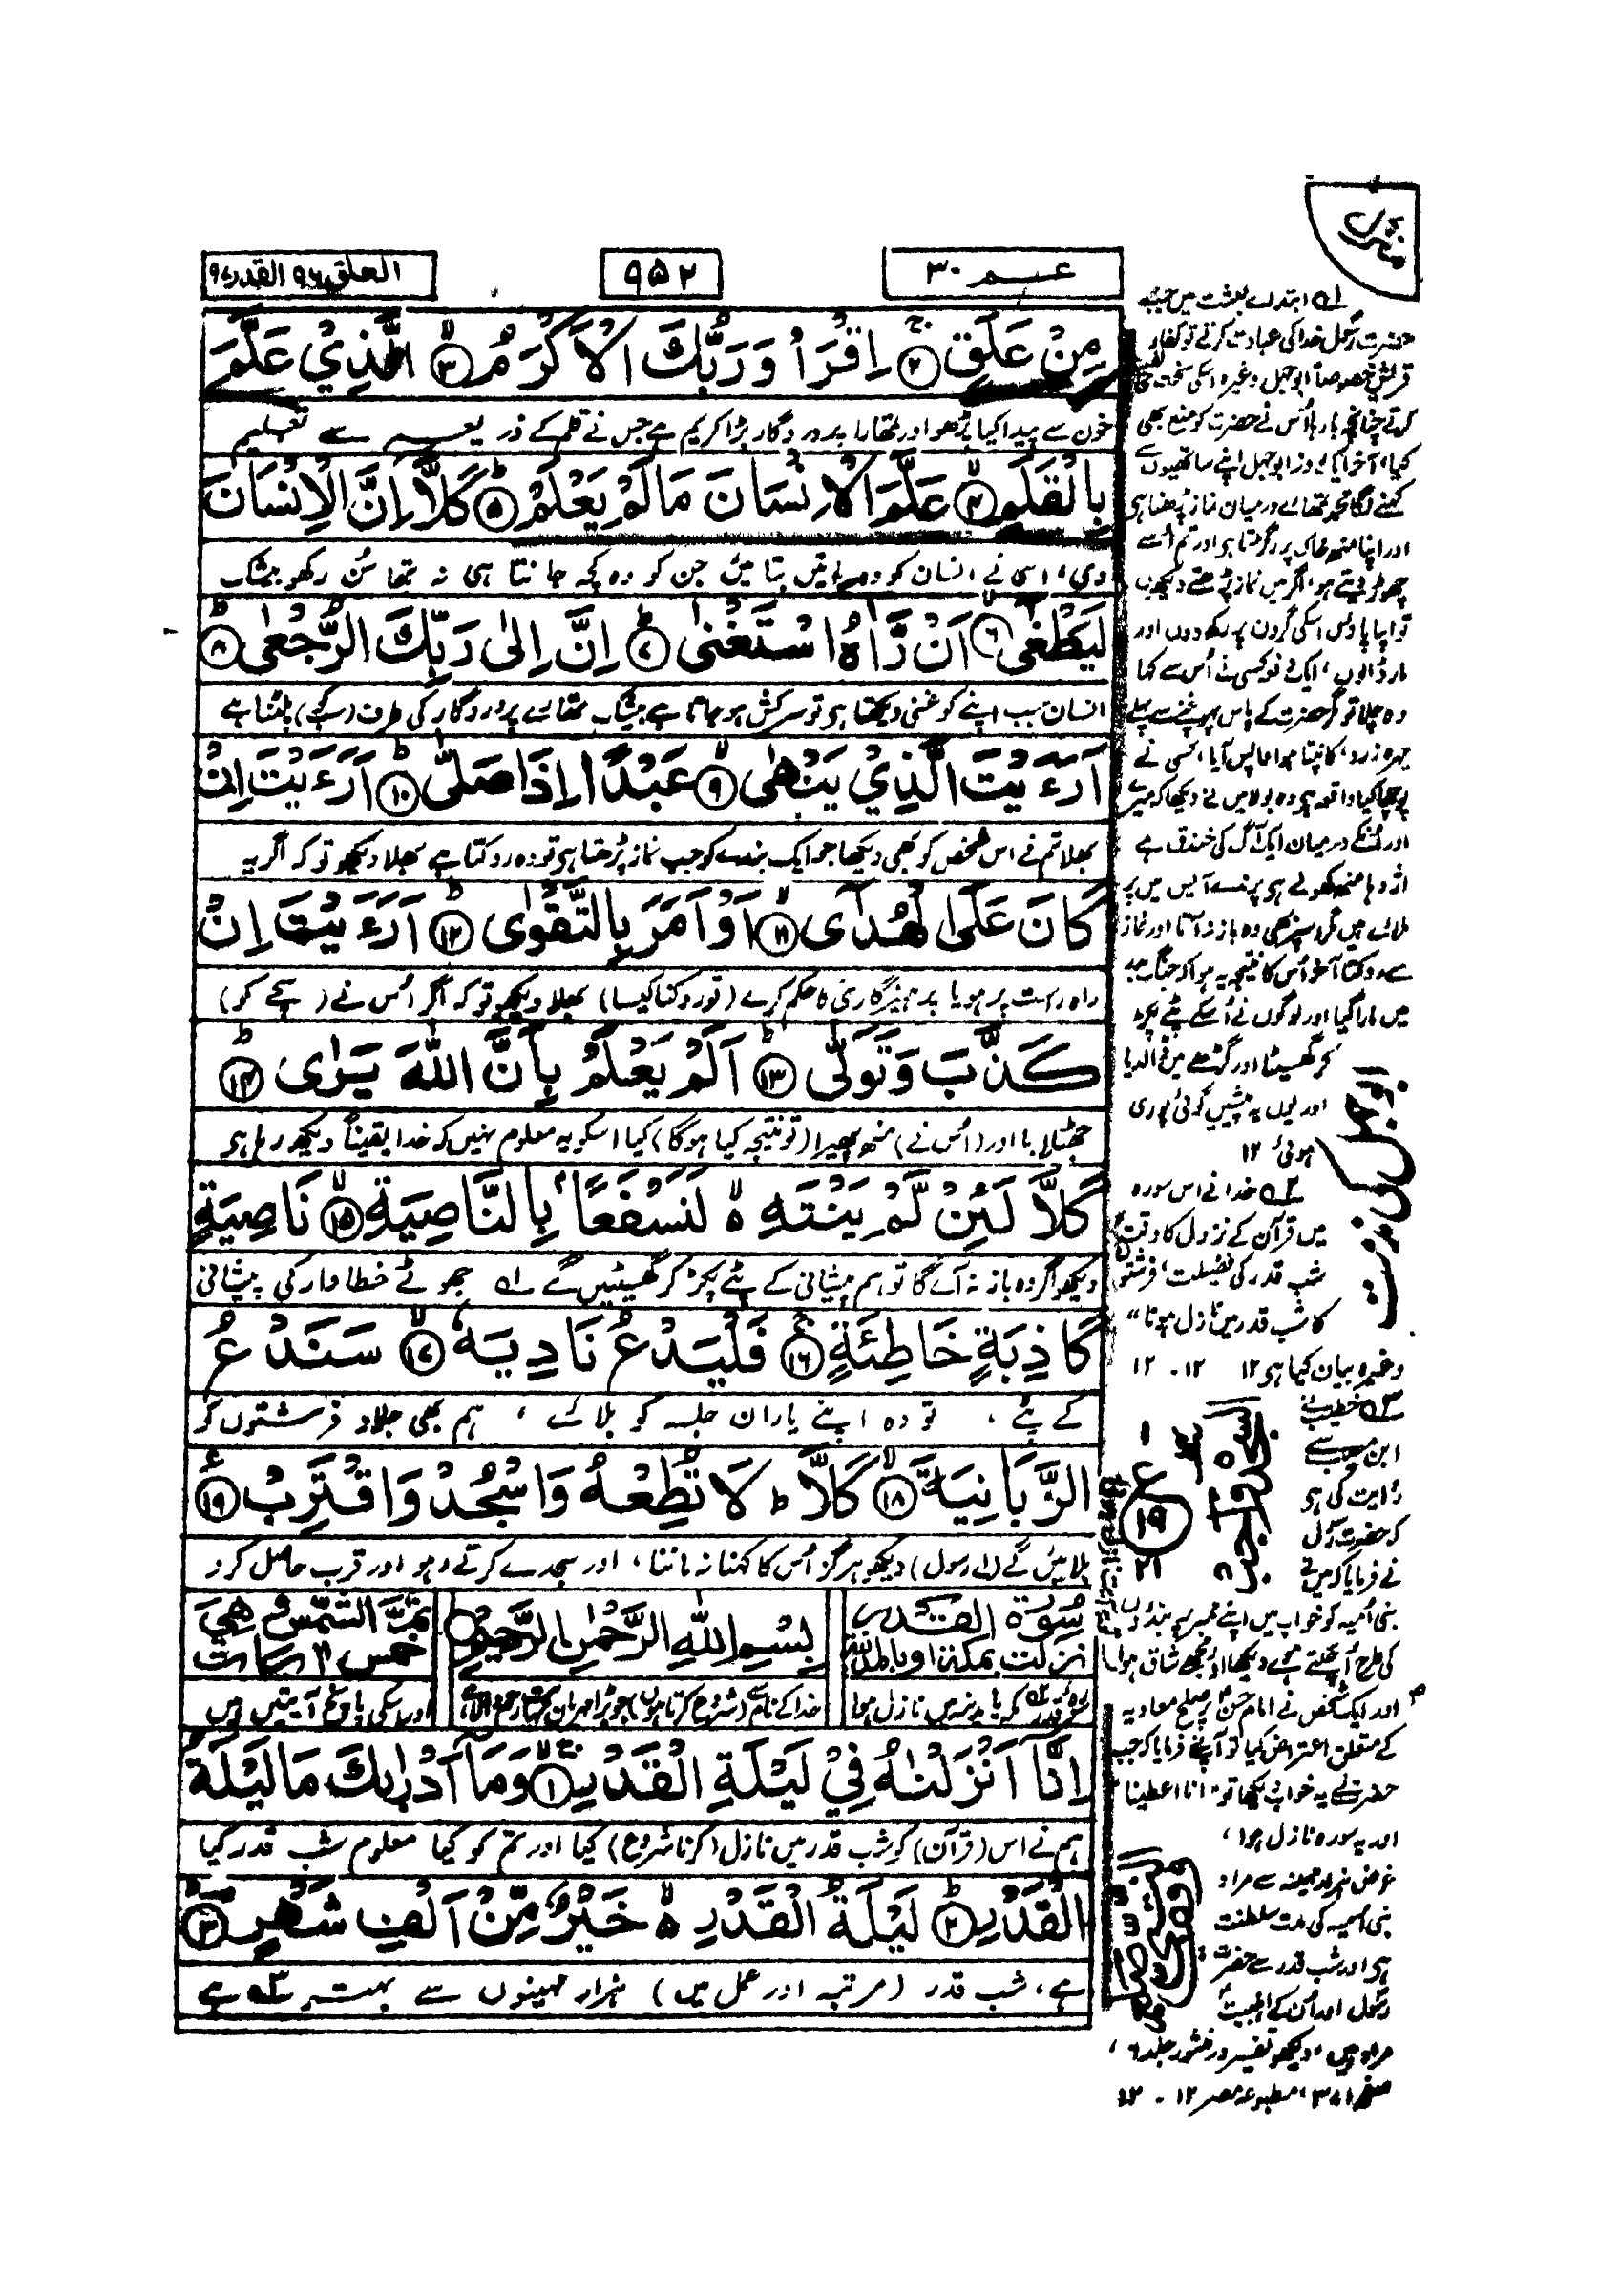 منزل
عــم ۳۰
۹۵۲
العلق ۹۶ القدر ۹۷
مِنْ عَلَقٍ ۲ اِقْرَاْ وَرَبُّكَ الْاَكْرَمُ ۳ الَّذِيْ عَلَّمَ
خون سے پیدا کیا پڑھو اور تمھارا پروردگار بڑا کریم ہے جس نے قلم کے ذریعہ سے تعلیم
بِالْقَلَمِ ۴ عَلَّمَ الْاِنْسَانَ مَا لَمْ يَعْلَمْ ۵ كَلَّا اِنَّ الْاِنْسَانَ
دی، اسی نے انسان کو وہ باتیں بتائیں جن کو وہ کچھ جانتا ہی نہ تھا سُن رکھو بیشک
لَيَطْغٰى ۶ اَنْ رَّاٰهُ اسْتَغْنٰى ۷ اِنَّ اِلٰى رَبِّكَ الرُّجْعٰى ۸
انسان جب اپنے کو غنی دیکھتا ہی تو سرکش ہو جاتا ہے بیشک تمھارے پروردگار کی طرف (سبکو) پلٹنا ہے
اَرَءَيْتَ الَّذِيْ يَنْهٰى ۹ عَبْدًا اِذَا صَلّٰى ۱۰ اَرَءَيْتَ اِنْ
بھلا تم نے اس شخص کو بھی دیکھا جو ایک بندے کو جب نماز پڑھتا ہی تو وہ روکتا ہے بھلا دیکھو تو کہ اگر یہ
كَانَ عَلَى الْهُدٰى ۱۱ اَوْ اَمَرَ بِالتَّقْوٰى ۱۲ اَرَءَيْتَ اِنْ
راہ راست پر ہو یا پرہیزگاری کا حکم کرے (تو روکنا کیسا) بھلا دیکھو تو کہ اگر اُس نے (سچے کو)
كَذَّبَ وَتَوَلّٰى ۱۳ اَلَمْ يَعْلَمْ بِاَنَّ اللّٰهَ يَرٰى ۱۴
جھٹلا یا اور (اُس نے) منھ پھیرا (تو نتیجہ کیا ہوگا) کیا اسکو یہ معلوم نہیں کہ خدا یقیناً دیکھ رہا ہی
كَلَّا لَئِنْ لَّمْ يَنْتَهِ ەۙ لَنَسْفَعًا بِالنَّاصِيَةِ ۱۵ نَاصِيَةٍ
دیکھو اگر وہ باز نہ آئے گا تو ہم پیشانی کے پٹے پکڑ کر گھسیٹیں گے ۱؎ جھوٹے خطا وار کی پیشانی
كَاذِبَةٍ خَاطِئَةٍ ۱۶ فَلْيَدْعُ نَادِيَهٗ ۱۷ سَنَدْعُ
کے پٹے، تو وہ اپنے یاران جلسہ کو بلائے، ہم بھی جلاد فرشتوں کو
الزَّبَانِيَةَ ۱۸ كَلَّا ط لَا تُطِعْهُ وَاسْجُدْ وَاقْتَرِبْ ۱۹
بلائیں گے (اے رسول) دیکھو ہرگز اُس کا کہنا نہ ماننا، اور سجدے کرتے رہو اور قرب حاصل کرو
سُوْرَةُ الْقَدْرِ نزلت بمكة او بالمدينة
بِسْمِ اللّٰهِ الرَّحْمٰنِ الرَّحِيْمِ
خمس اٰيات
سورۂ قدر ۲؎ مکہ یا مدینہ میں نازل ہوا
خدا کے نام سے (شروع کرتا ہوں) جو بڑا مہربان نہایت رحم والا ہے
اور اسکی پانچ آیتیں ہیں
اِنَّا اَنْزَلْنٰهُ فِيْ لَيْلَةِ الْقَدْرِ ۱ وَمَا اَدْرٰىكَ مَا لَيْلَةُ
ہم نے اس (قرآن) کو شب قدر میں نازل (کرنا شروع) کیا اور تم کو کیا معلوم شب قدر کیا
الْقَدْرِ ۲ لَيْلَةُ الْقَدْرِ ەۙ خَيْرٌ مِّنْ اَلْفِ شَهْرٍ ۳
ہے، شب قدر (مرتبہ اور عمل میں) ہزار مہینوں سے بہتر ۳؎ ہے
۱؎ ابتدائے بعثت میں جب
حضرت رسول خدا کی عبادت کرتے تو کفار
قریش خصوصاً ابوجہل وغیرہ اسکی سخت
کرتے چنانچہ بارہا اُس نے حضرت کو منع بھی
کیا، آخر ایک روز ابوجہل اپنے ساتھیوں سے
کہنے لگا محمد تمھارے درمیان نماز پڑھتا ہی
اور اپنا منھ خاک پر رگڑتا ہی اور تم اُسے
چھوڑ دیتے ہو، اگر میں نماز پڑھتے دیکھوں
تو اپنا پاؤں اسکی گردن پر رکھ دوں اور
مار ڈالوں، ایک نے اُس سے کہا
وہ چلا تو مگر حضرت کے پاس پہونچنے سے پہلے
چہرہ زرد، کانپتا ہوا واپس آیا، کسی نے
پوچھا کیا واقعہ ہی وہ بولا میں نے دیکھا کہ میرے
اور اُنکے درمیان ایک آگ کی خندق ہے
اژدہا منھ کھولے ہی پرندے آپس میں پر
ملائے ہیں مگر اسپر بھی وہ باز نہ آتا اور نماز
سے روکتا آخر اُس کا نتیجہ یہ ہوا کہ جنگ بدر
میں مارا گیا اور لوگوں نے اُسکے پٹے پکڑ
کر گھسیٹا اور گڑھے میں ڈالدیا
اور یوں یہ پیشین گوئی پوری
ہوئی، ۱۲
۲؎ خدا نے اس سورہ
میں قرآن کے نزول کا وقت
شب قدر کی فضیلت، فرشتوں
کا شب قدر میں نازل ہونا"
وغیرہ بیان کیا ہی ۱۲ ۱۲ - ۱۲
۳؎ خطیب نے
ابن مسیب سے
روایت کی ہی
کہ حضرت رسول
نے فرمایا کہ میں نے
بنی اُمیہ کو خواب میں اپنے منبر پر بندروں
کی طرح اُچھلتے ہوئے دیکھا اور مجھے شاق ہوا
اور ایک شخص نے امام حسنؑ پر صلح معاویہ
کے متعلق اعتراض کیا تو آپ نے فرمایا کہ جب
حضرت نے یہ خواب دیکھا تو "انا اعطینا"
اور یہ سورہ نازل ہوا،
غرض ہزار مہینہ سے مراد
بنی اُمیہ کی مدت سلطنت
ہی اور شب قدر سے حضرت
رسول اور اُن کے اہلبیت
مراد ہیں، دیکھو تفسیر در منثور جلد ۶،
صفحہ ۳۷۱، مطبوعہ مصر ۱۲ - ۱۲
ع
۱۹
۲۱